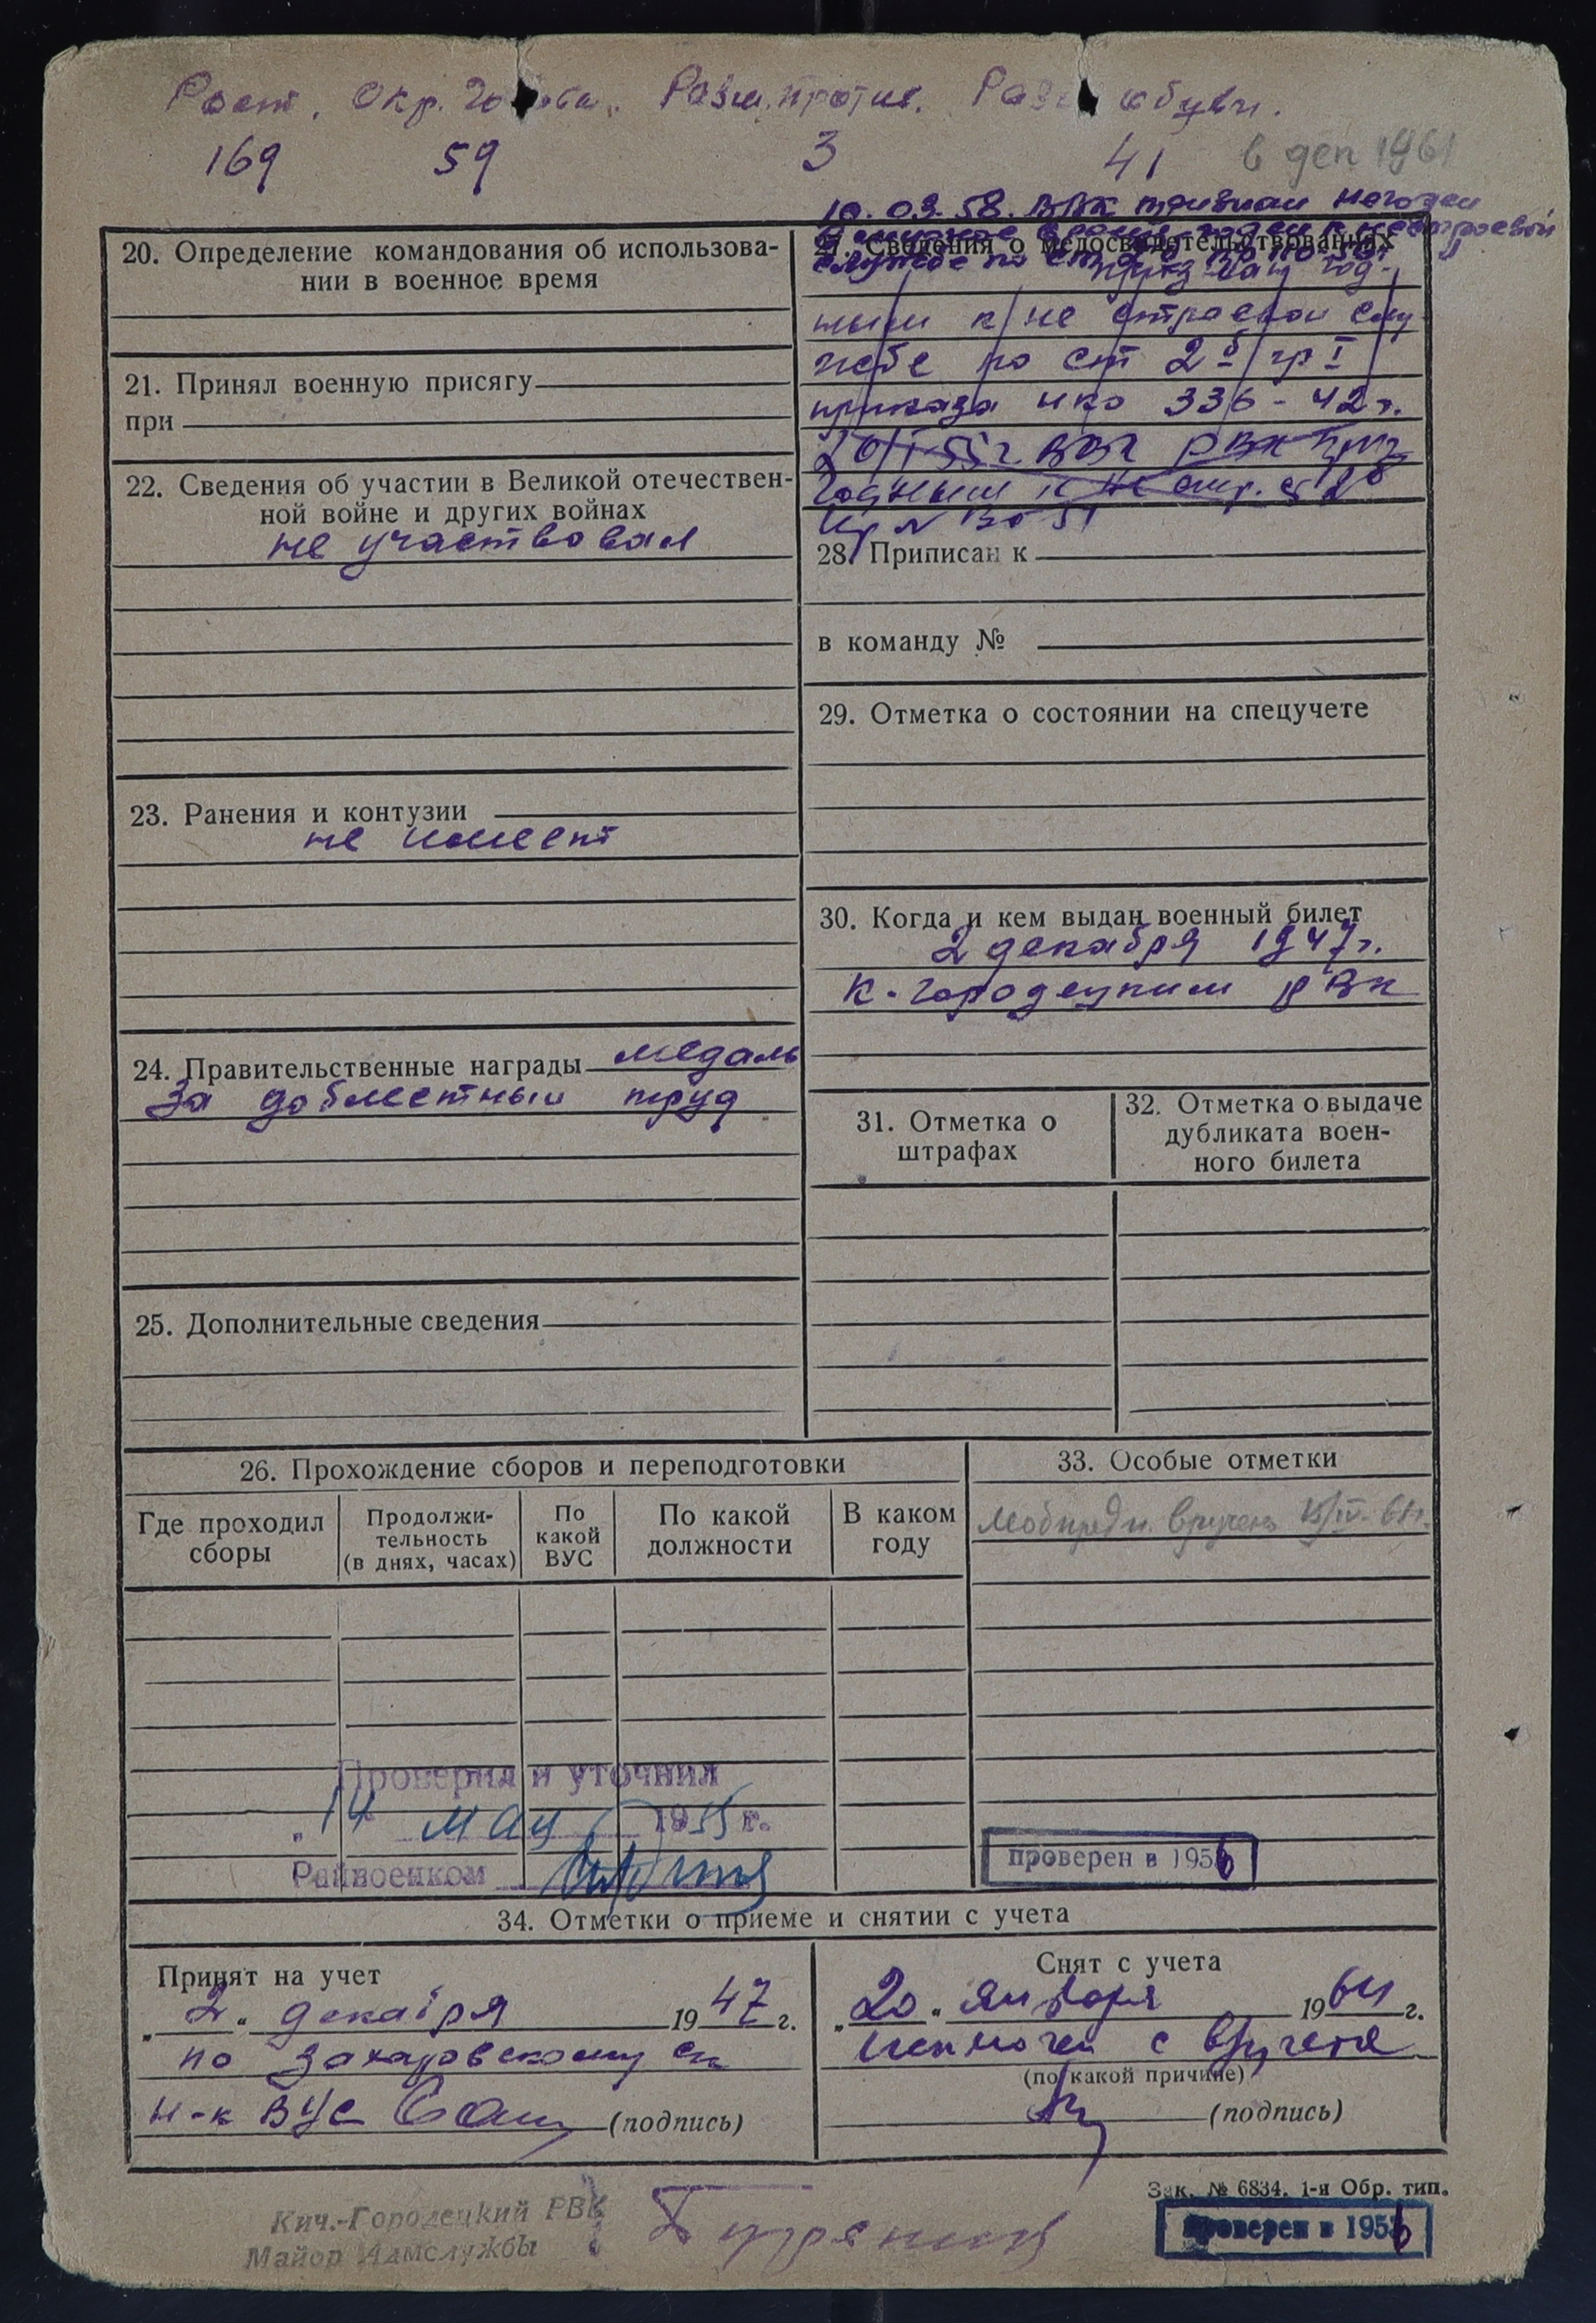 Рост. Окр. головы. Разм. против. Разм обуви.
169 59 3 41 в деп 1961
10.03.58. ВВК признан негоден
в мирное время годен к нестроевой
службе по ст.
20. Определение командования об использова-
нии в военное время
21. Принял военную присягу
при
22. Сведения об участии в Великой отечествен-
ной войне и других войнах
не участвовал
23. Ранения и контузии
не имеет
24. Правительственные награды медаль
За доблестный труд
25. Дополнительные сведения
27. Сведения о медосвидетельствованиях
признан год-
ным к не строевой слу
жбе по ст 2б гр I
приказа нко 336-42г.
РВК
годным к не стр.
28. Приписан к
в команду №
29. Отметка о состоянии на спецучете
30. Когда и кем выдан военный билет
2 декабря 1947г.
К-городецким РВК
31. Отметка о
штрафах
32. Отметка о выдаче
дубликата воен-
ного билета
26. Прохождение сборов и переподготовки
Где проходил
сборы
Продолжи-
тельность
(в днях, часах)
По
какой
ВУС
По какой
должности
В каком
году
33. Особые отметки
Мобпредп. вручено
Проверил и уточнил
„14 мая 1955 г.
Райвоенком
проверен в 1956
34. Отметки о приеме и снятии с учета
Принят на учет
„2“ декабря 1947 г.
по Захаровскому ск
Н-к ВУС (подпись)
Снят с учета
„20“ января 1964 г.
исключен с в/учета
(по какой причине)
(подпись)
Зак. № 6834. 1-я Обр. тип.
Кич.-Городецкий РВК
Майор Админслужбы
проверен в 1956